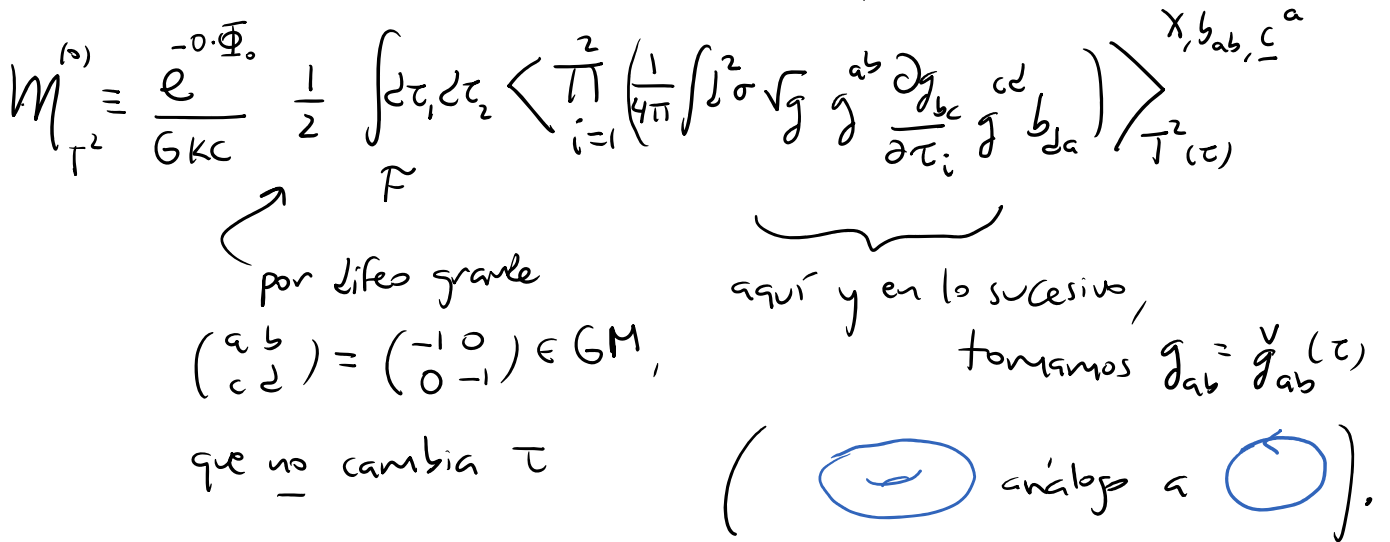 M_{T²}^{(0)} ≡ \frac{e^{-0·Φ₀}}{GKC} \frac{1}{2} ∫_F dτ₁dτ₂ ⟨ ∏_{i=1}^{2} ( \frac{1}{4π} ∫d²σ √g g^{ab} \frac{∂g_{bc}}{∂τ_i} g^{cd} b_{da} ) ⟩_{T²(τ)}^{X, b_{ab}, c^a}
por difeo grande
(a b; c d) = (-1 0; 0 -1) ∈ GM,
que no cambia τ
aquí y en lo sucesivo,
tomamos g_{ab} = ǧ_{ab}(τ)
( análogo a ).